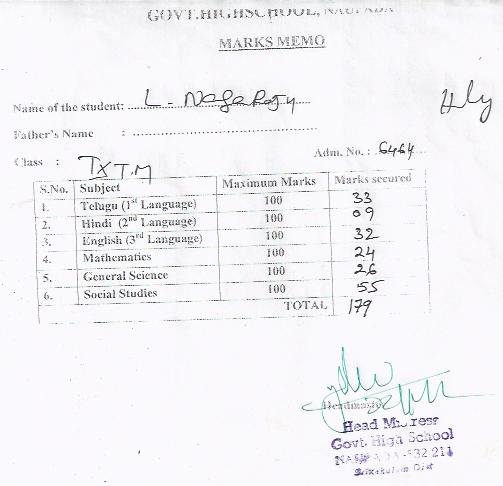 GOVT.HIGHSCHOOL, NAUPADA
MARKS MEMO
Name of the student: L - Nagaraju
Hly
Father's Name :
Adm. No. : 6464
Class : IX T.M
S.No. Subject Maximum Marks Marks secured
1. Telugu (1st Language) 100 33
2. Hindi (2nd Language) 100 09
3. English (3rd Language) 100 32
4. Mathematics 100 24
5. General Science 100 26
6. Social Studies 100 55
TOTAL 179
Headmaster
Head Mistress
Govt. High School
NAUPADA-532 211
Srikakulam Dist